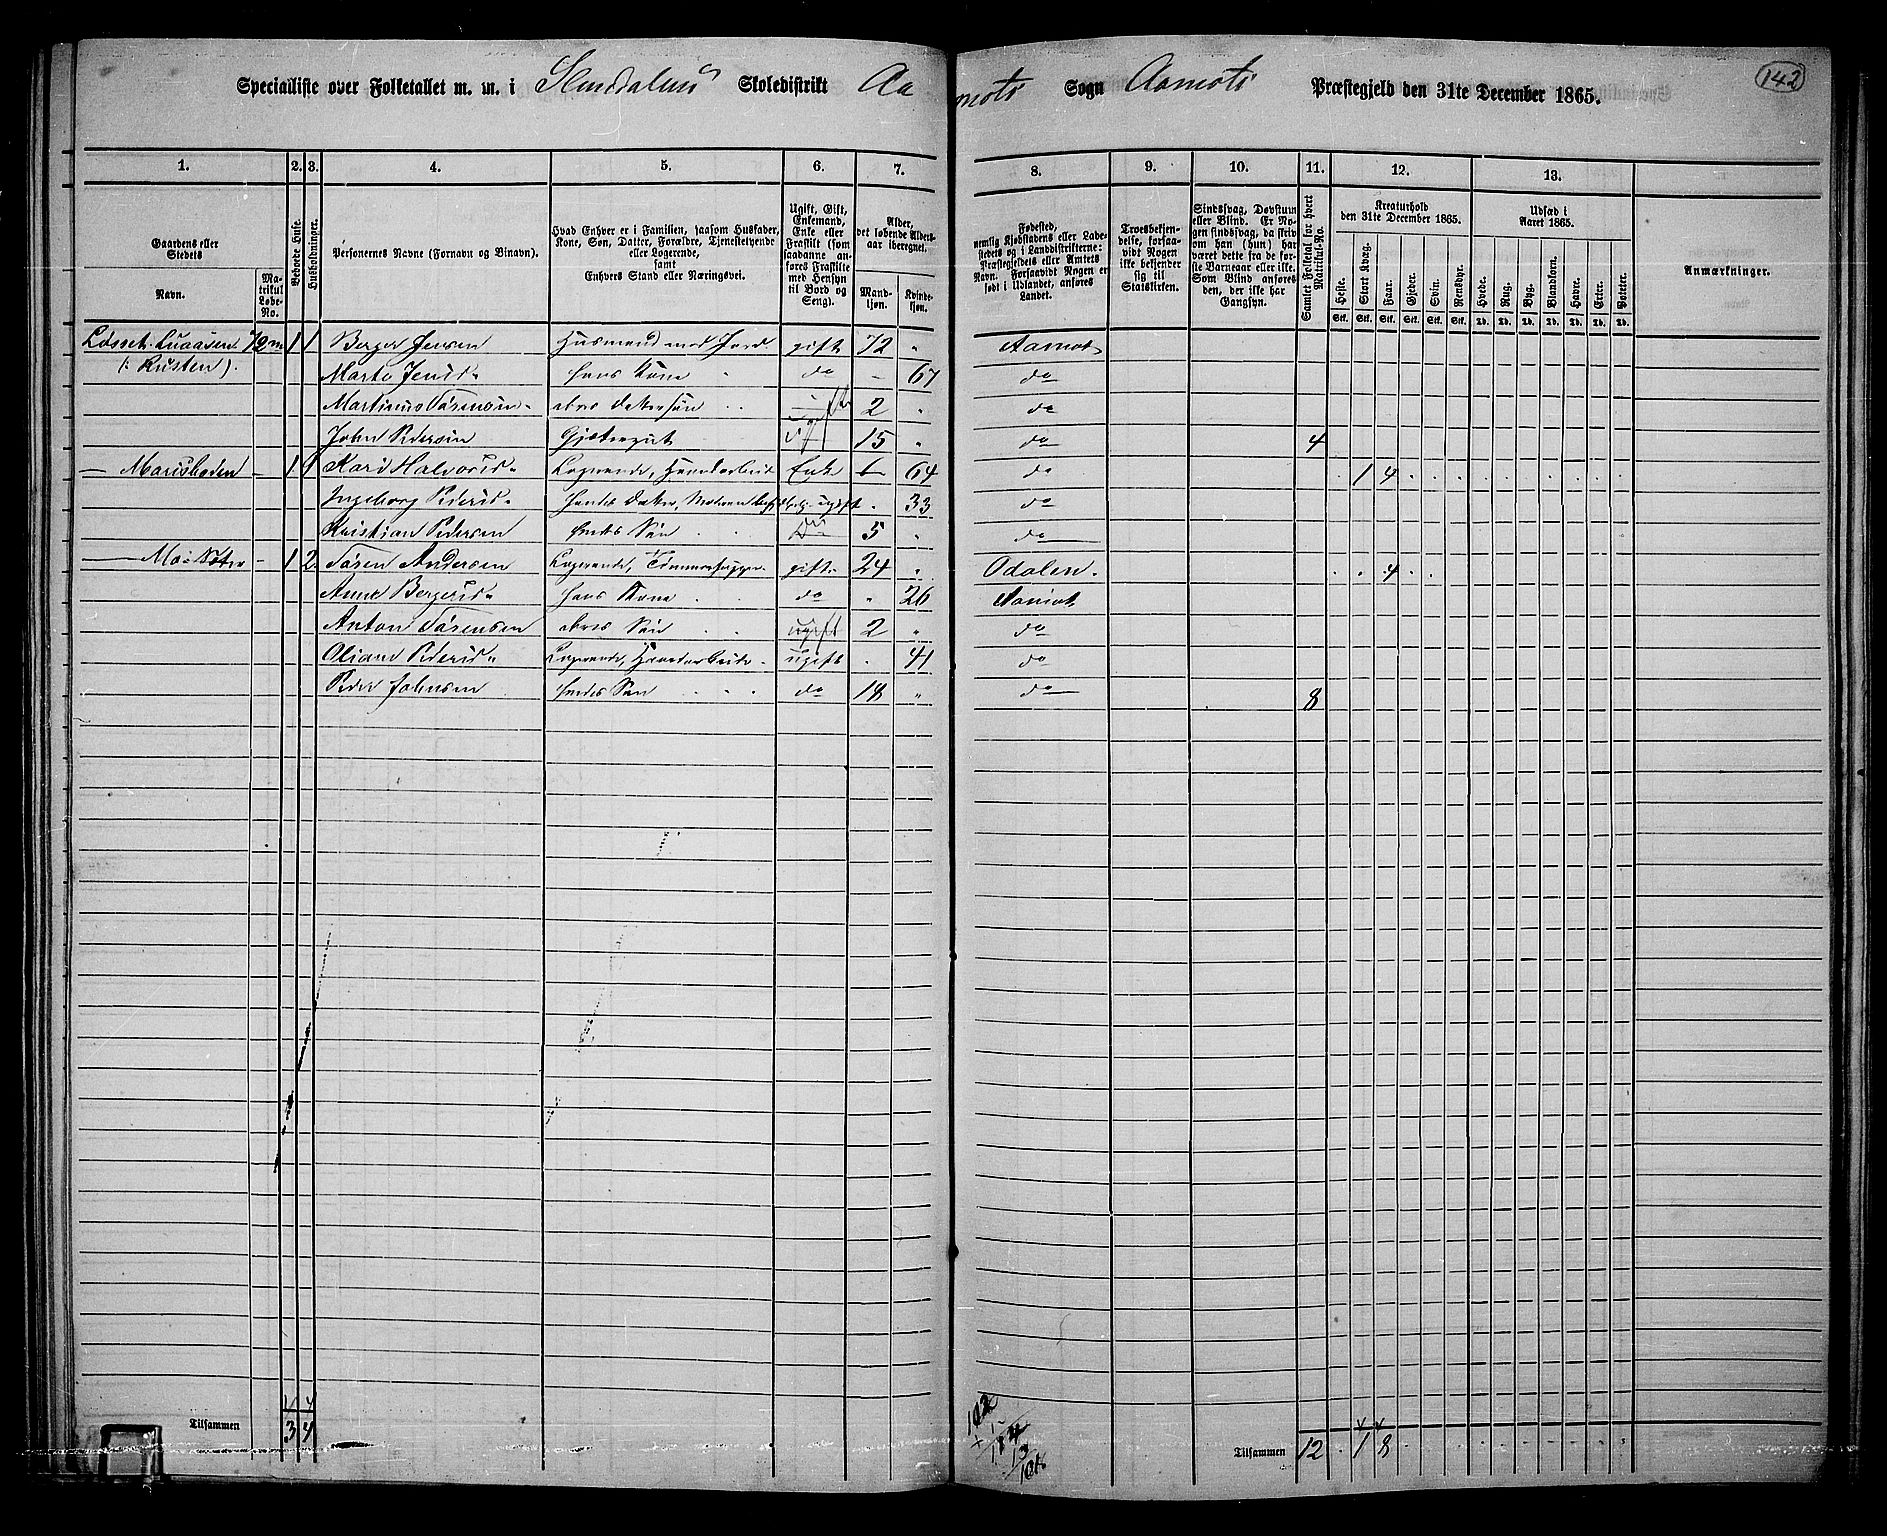 Specialliste over Folketallet m. m. i Skoledistrikt Aamots Sogn Aamots Præstegjeld den 31te December 1865.
142
1. 2. 3. 4. 5. 6. 7. 8. 9. 10. 11. 12. 13.
Gaardens eller Stedets Navn.
Matrikul Løbe-No.
Beboede Huse.
Husholdninger.
Personernes Navne (Fornavn og Binavn).
Hvad Enhver er i Familien, saasom Husfader, Kone, Søn, Datter, Forældre, Tjenestetyende eller Logerende, samt Enhvers Stand eller Næringsvei.
Ugift, Gift, Enkemand, Enke eller Fraskilt (som saadanne anføres Fraskilte med Hensyn til Bord og Seng).
Alder, det løbende Aldersaar iberegnet.
Mandkjøn.
Kvindekjøn.
Fødested, nemlig Kjøbstadens eller Ladestedets og i Landdistrikterne: Præstegjeldets eller Amtets Navn. Forsaavidt Nogen er født i Udlandet, anføres Landet.
Troesbekjendelse, forsaavidt Nogen ikke bekjender sig til Statskirken.
Sindssvag, Døvstum eller Blind. Er Nogen sindssvag, da skriv om han (hun) har været dette fra de første Barneaar eller ikke. Som Blind anføres den, der ikke har Gangsyn.
Samlet Folketal for hvert Matrikul-No.
Kreaturhold den 31te December 1865.
Heste. Stort Kvæg. Faar. Gjeder. Svin. Rensdyr.
Stk. Stk. Stk. Stk. Stk. Stk.
Udsæd i Aaret 1865.
Hvede. Rug. Byg. Blandkorn. Havre. Erter. Poteter.
Td. Td. Td. Td. Td. Td. Td.
Anmærkninger.
1 1 Berger Jensen Husmand med Jord gift 72 " Aamot
(: Rusten). Marte Jensd. hans Kone do - 67 do
Martinus Sørensen deres Dattersøn ugift 2 " do
John Pedersen Gjætergut 15 " do 4
— Marisboden 1 1 Kari Halvorsd. Logerende, Haandarbeid Enke 64 do 1 4
Ingeborg Pedersd. hendes Datter, ugift 33 do
Kristian Pedersen hendes Søn do 5 " do
— Mo-Sæter 1 2 Søren Andersen Logerende, Tømmerhugger gift 24 " Odalen. 4
Anne Bergersd. hans Kone do " 26 Aamot
Anton Sørensen deres Søn ugift 2 " do
Oliane Pedersd. Logerende, Haandarbeide ugift 41 do
Peder Johnsen hendes Søn do 18 " do 8
Tilsammen 3 4
Tilsammen 12 1 8